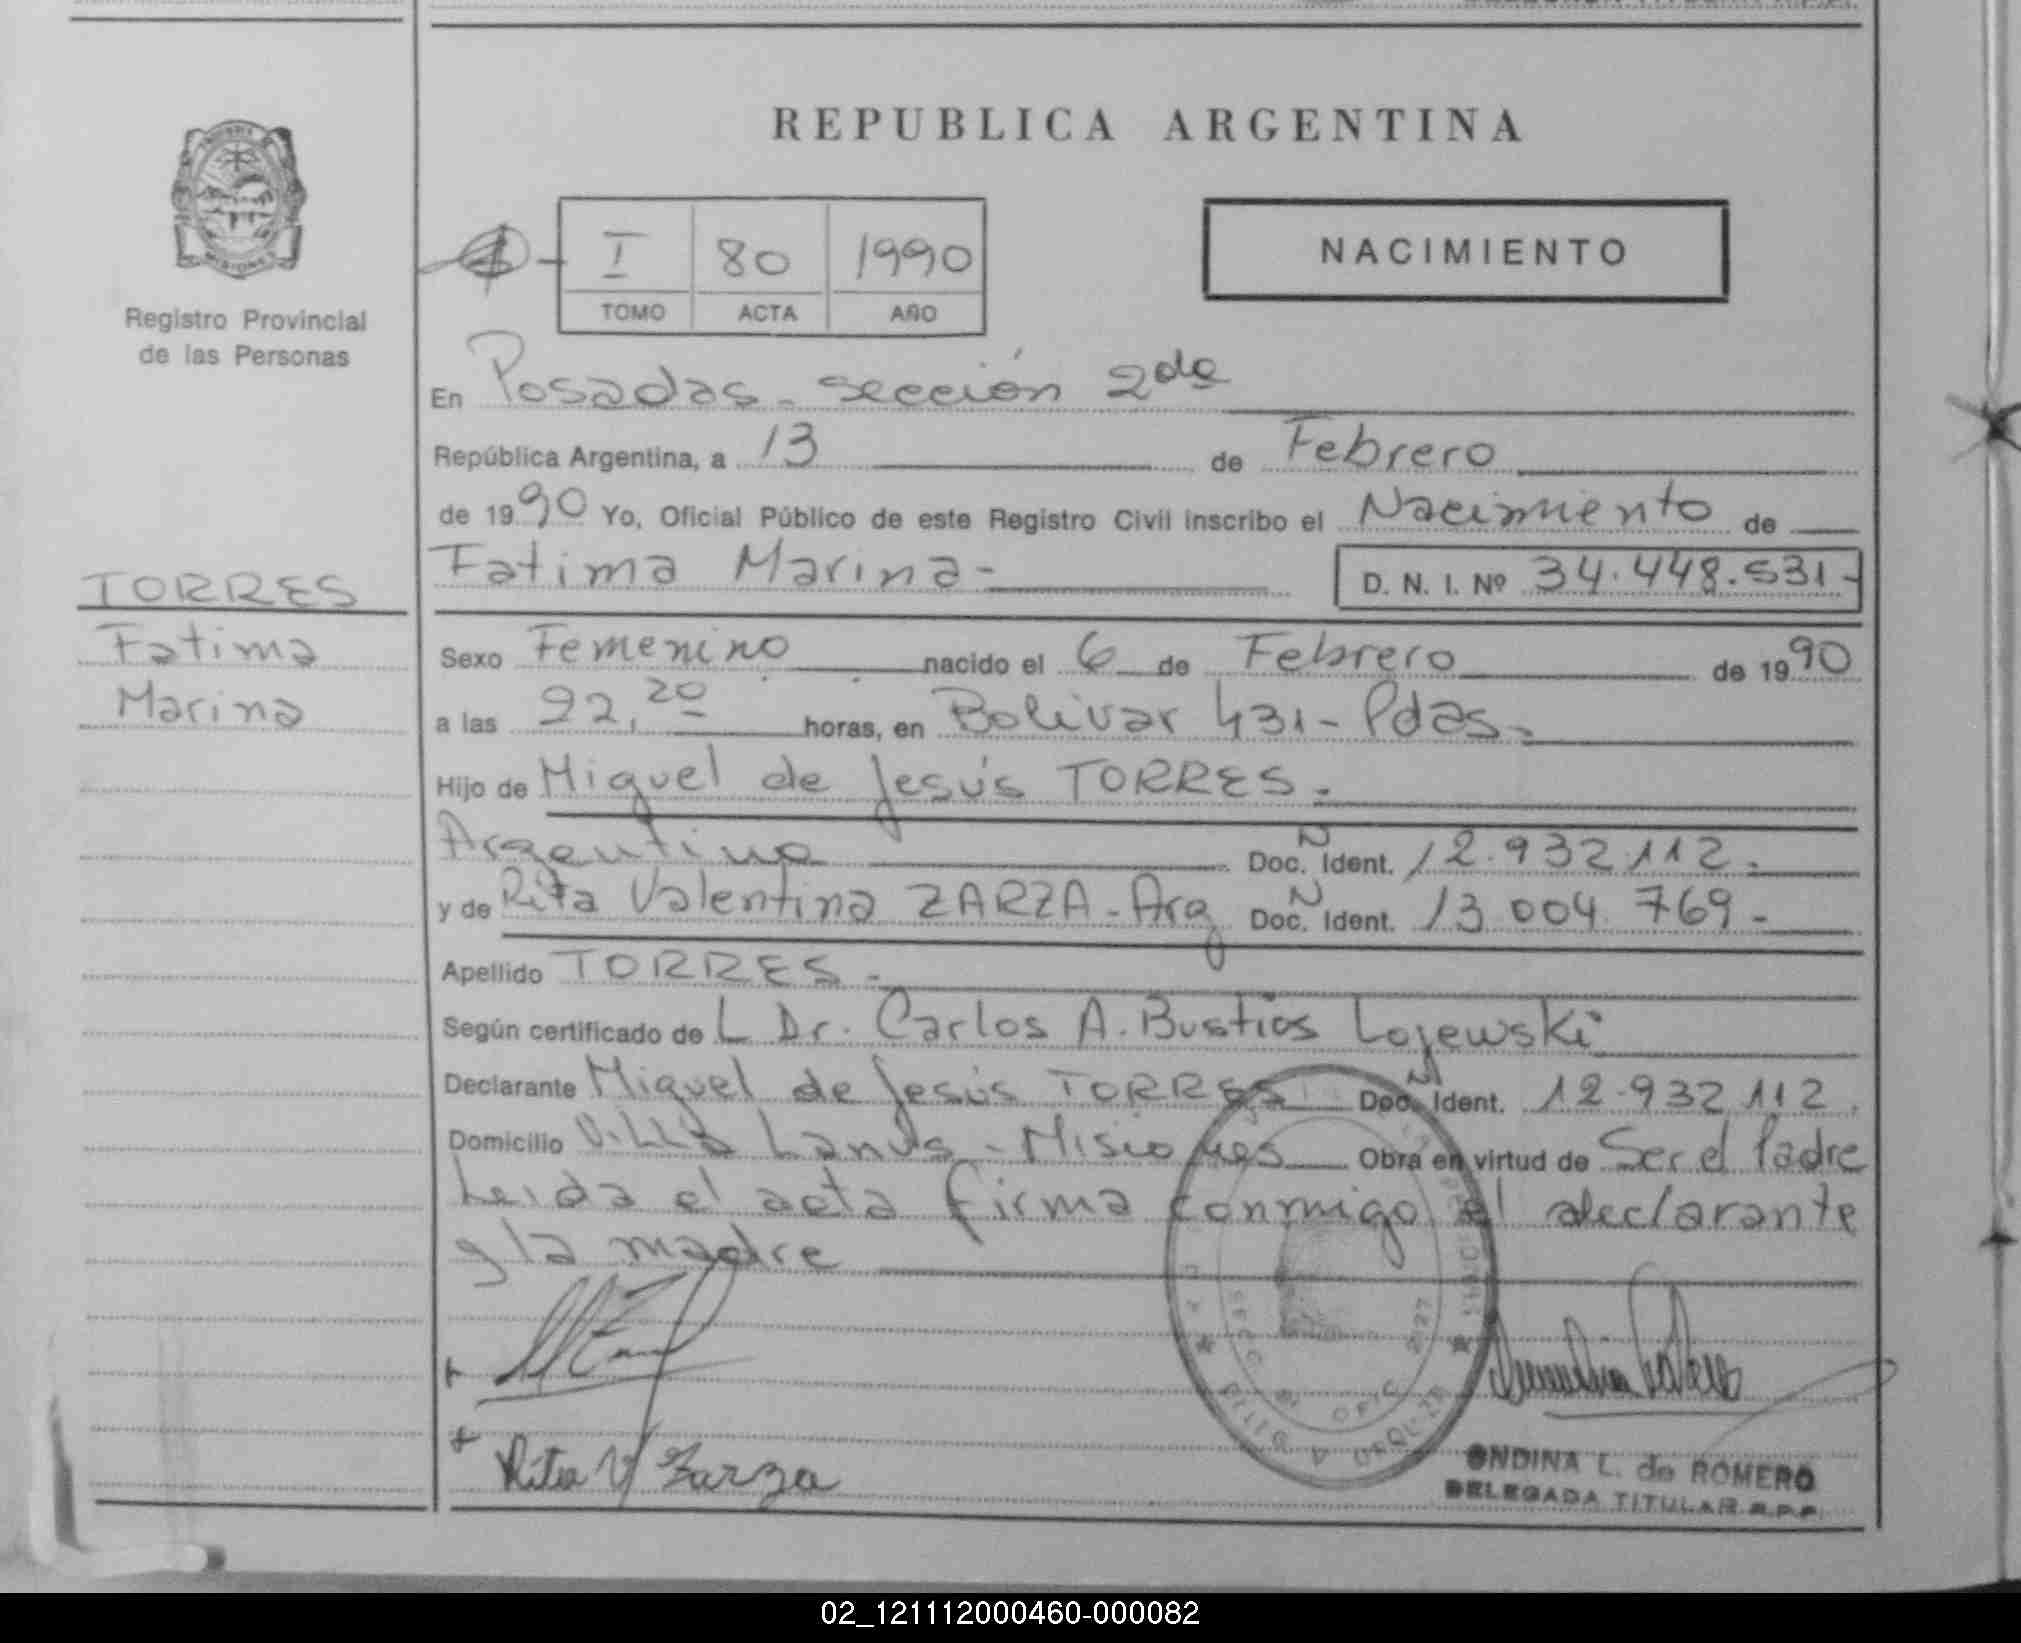 REPUBLICA ARGENTINA
MISIONES
Registro Provincial
de las Personas
I 80 1990
TOMO ACTA AÑO
NACIMIENTO
En Posadas - sección 2da
República Argentina, a 13 de Febrero
de 1990 Yo, Oficial Público de este Registro Civil inscribo el Nacimiento de
Fatima Marina - D. N. I. Nº 34.448.531-
TORRES
Fatima
Marina
Sexo Femenino nacido el 6 de Febrero de 1990
a las 22,20 horas, en Bolivar 431 - Pdas.
Hijo de Miguel de Jesús TORRES.
Argentino Doc. N Ident. 12.932.112.
y de Rita Valentina ZARZA - Arg Doc. N Ident. 13.004.769-
Apellido TORRES.
Según certificado de L Dr. Carlos A. Bustios Lojewski
Declarante Miguel de Jesús TORRES Doc. N Ident. 12.932.112.
Domicilio Villa Lanus - Misiones Obra en virtud de Ser el Padre
Leida el acta firma conmigo el declarante
y la madre
Rita V Zarza
ONDINA L. de ROMERO
DELEGADA TITULAR R.P.P.
02_121112000460-000082